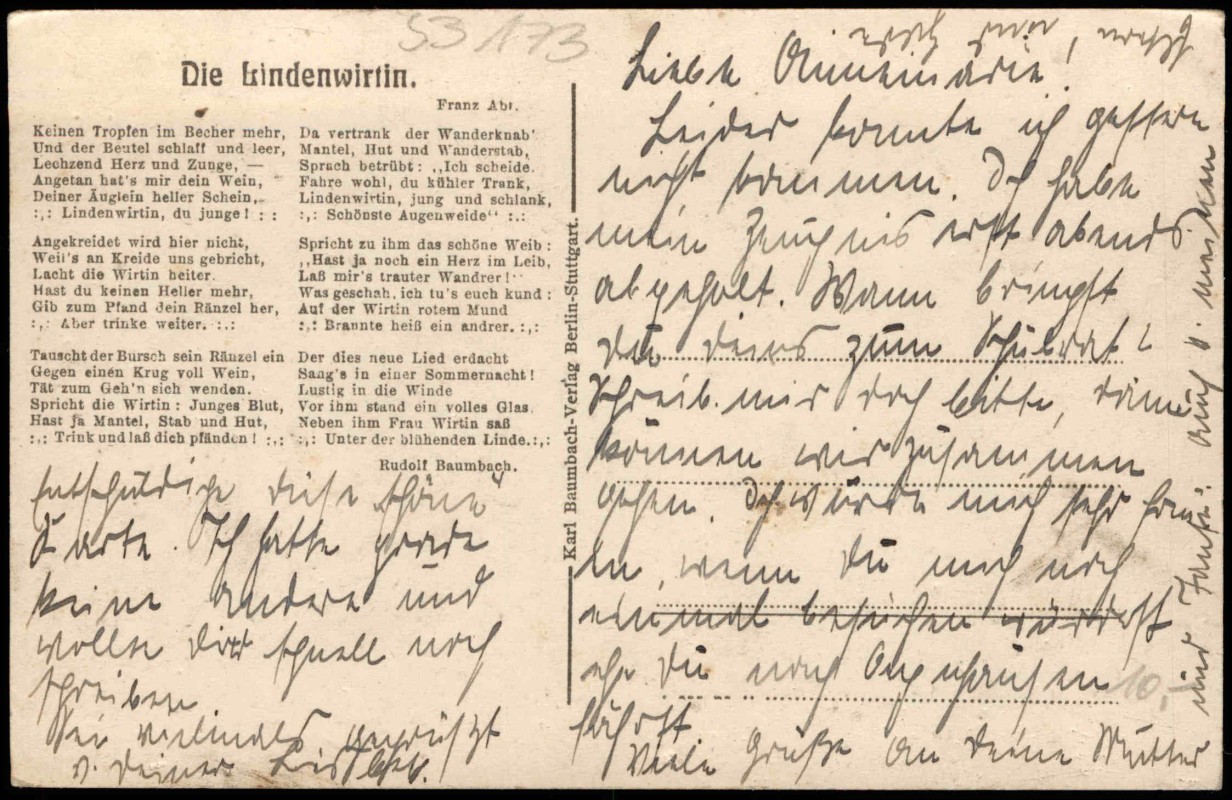 53 173
Die Lindenwirtin.
Franz Abt.
Keinen Tropfen im Becher mehr,
Und der Beutel schlaff und leer,
Lechzend Herz und Zunge, —
Angetan hat's mir dein Wein,
Deiner Äuglein heller Schein,
:,: Lindenwirtin, du junge! : :
Angekreidet wird hier nicht,
Weil's an Kreide uns gebricht,
Lacht die Wirtin heiter.
Hast du keinen Heller mehr,
Gib zum Pfand dein Ränzel her,
:,: Aber trinke weiter. :,:
Tauscht der Bursch sein Ränzel ein
Gegen einen Krug voll Wein,
Tät zum Geh'n sich wenden.
Spricht die Wirtin: Junges Blut,
Hast ja Mantel, Stab und Hut,
:,: Trink und laß dich pfänden! :,:
Da vertrank der Wanderknab'
Mantel, Hut und Wanderstab,
Sprach betrübt: ,,Ich scheide.
Fahre wohl, du kühler Trank,
Lindenwirtin, jung und schlank,
:,: Schönste Augenweide" :,:
Spricht zu ihm das schöne Weib:
,,Hast ja noch ein Herz im Leib,
Laß mir's trauter Wandrer!"
Was geschah, ich tu's euch kund:
Auf der Wirtin rotem Mund
:,: Brannte heiß ein andrer. :,:
Der dies neue Lied erdacht
Sang's in einer Sommernacht!
Lustig in die Winde
Vor ihm stand ein volles Glas.
Neben ihm Frau Wirtin saß
:,: Unter der blühenden Linde.:,:
Rudolf Baumbach.
Entschuldige diese „schöne"
Karte. Ich hatte grade
keine andere und
wollte dir schnell noch
schreiben
Sei vielmals gegrüßt
v. deiner
Karl Baumbach-Verlag Berlin-Stuttgart.
Liebe Annemarie!
Leider konnte ich gestern
nicht kommen. Ich habe
mein Zeugnis erst abends
abgeholt. Wann bringst
du deins zum Schulrat?
Schreib mir doch bitte, dann
können wir zusammen
gehen. Ich würde mich sehr freu
en, wenn du mich noch
einmal besuchen würdest
ehe du nach
fährst
10,-
Viele Grüße an deine Mutter
und Tante. Auch v. meinen